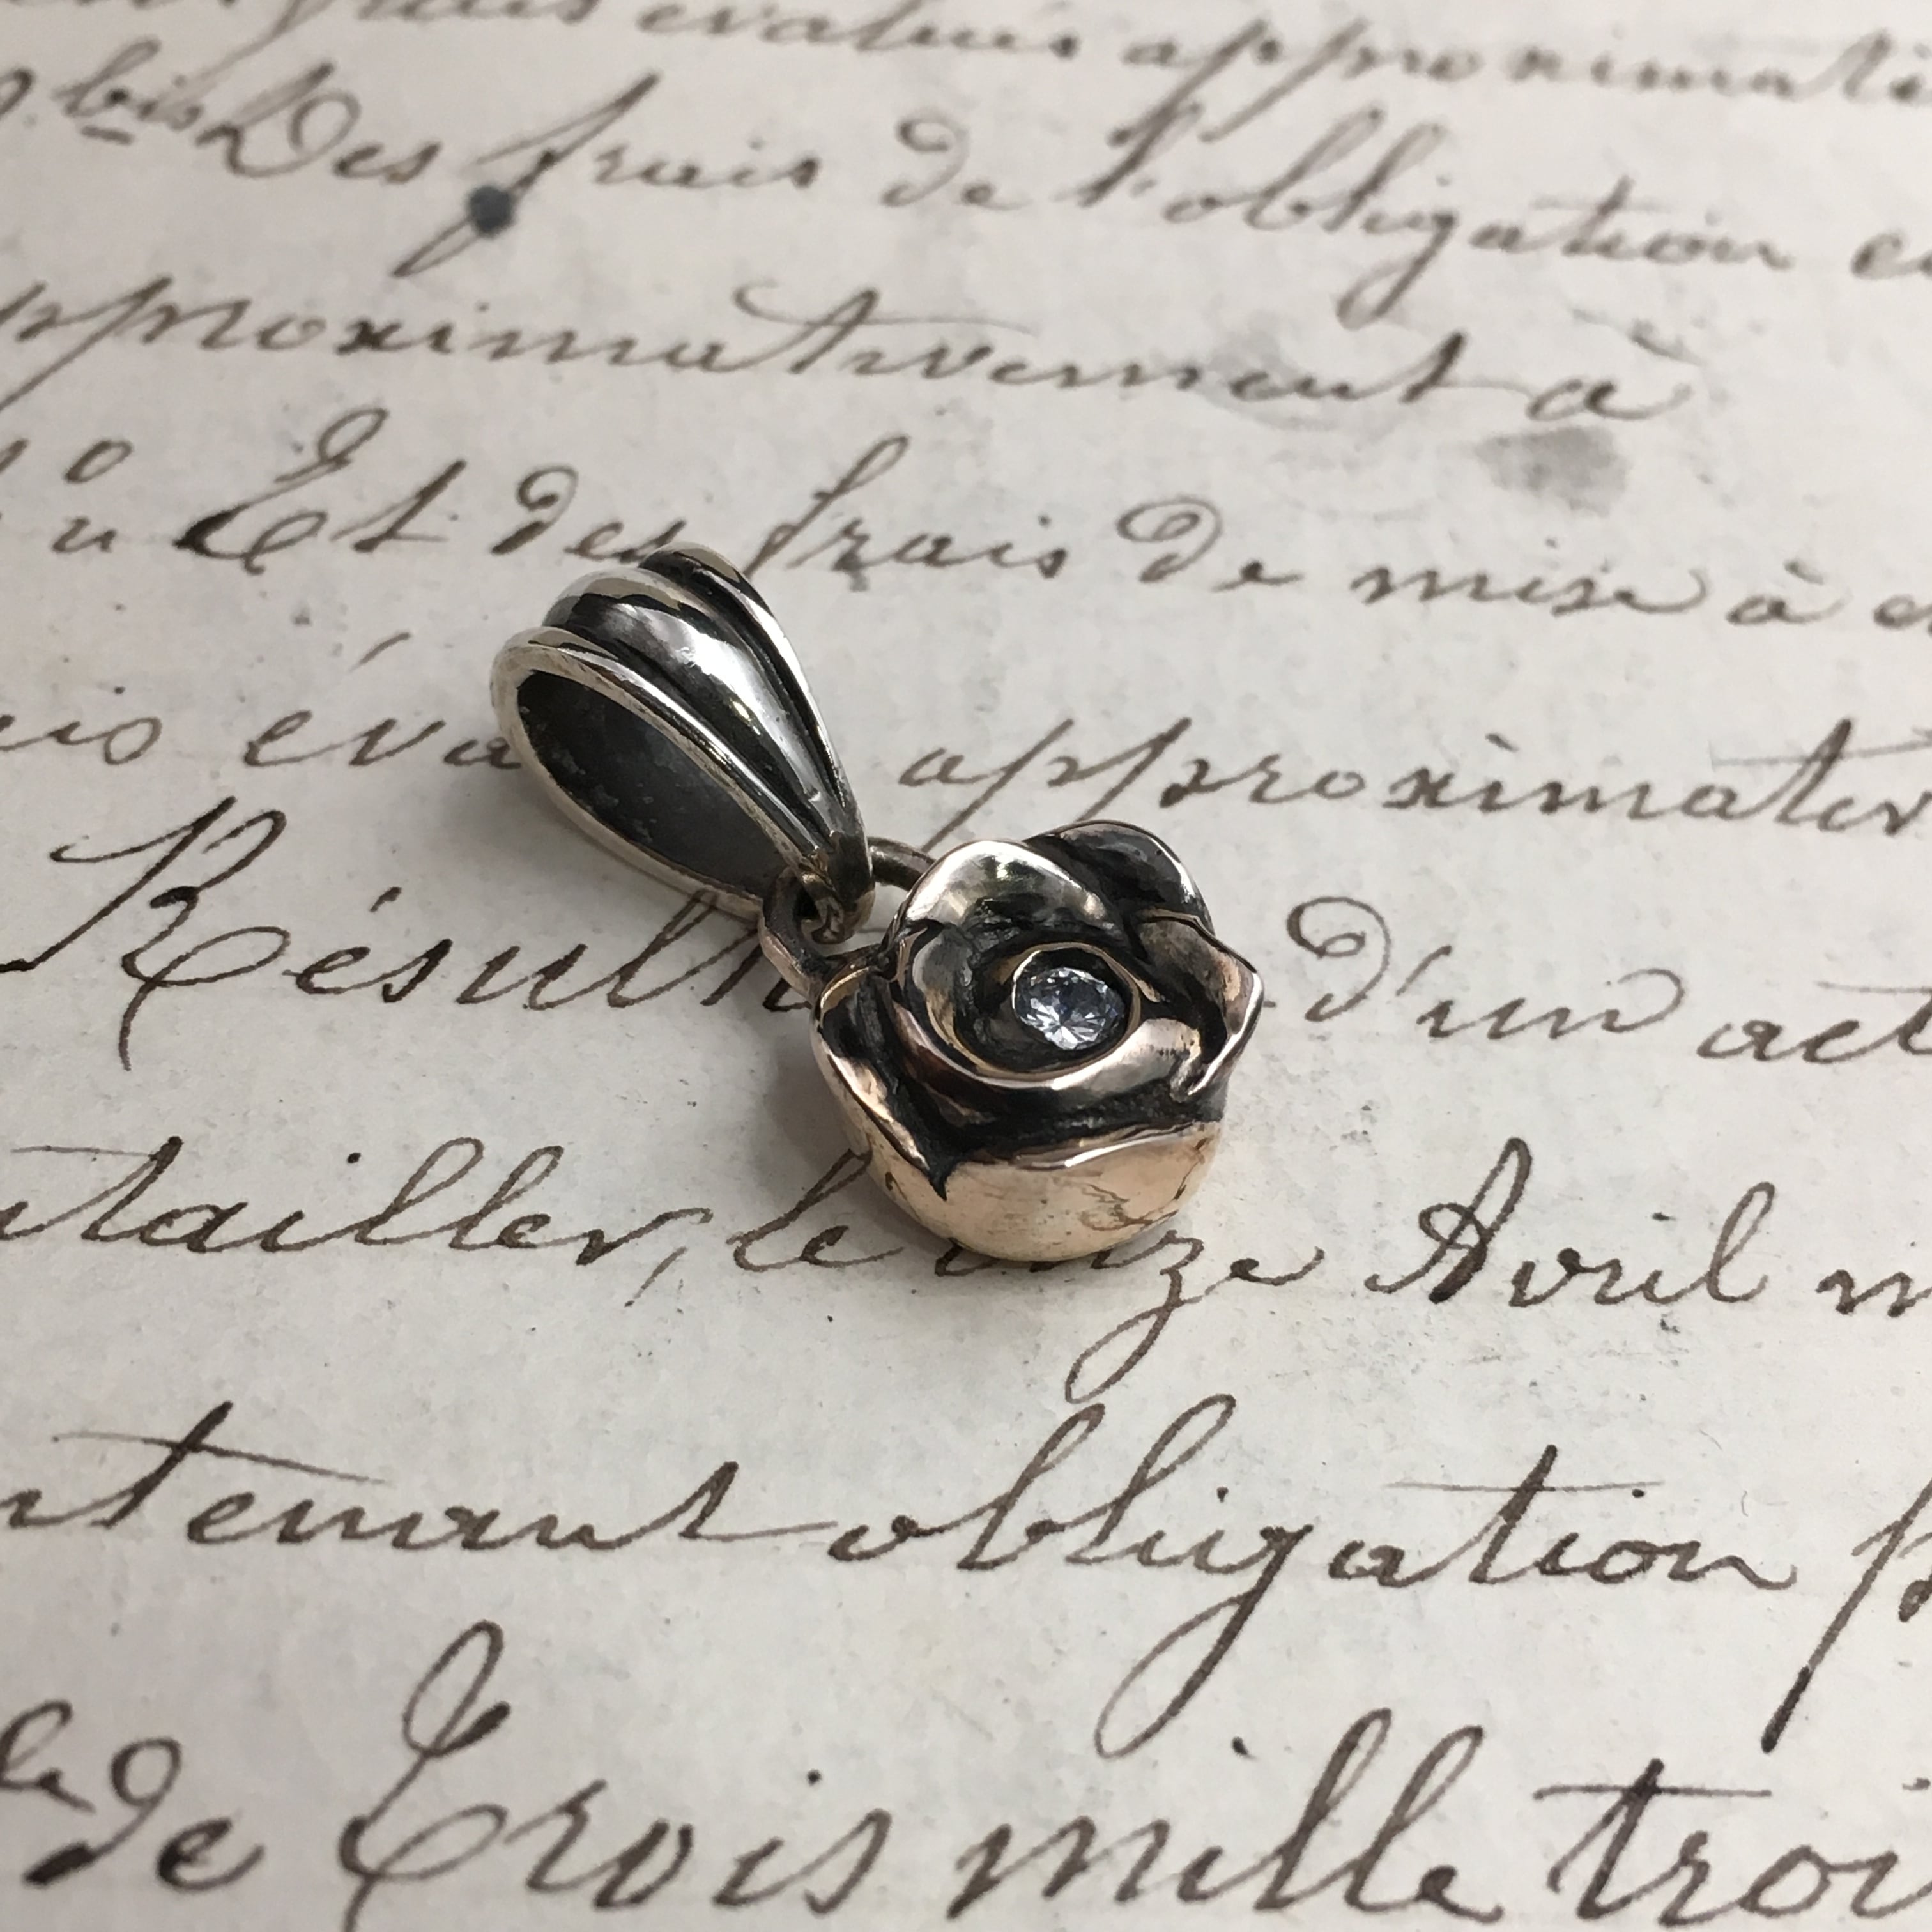 frais évalués approximati
bis Des frais de l'obligation e
pproximativement à
Et des frais de mise à e
is éva approximativ
Résult d'un act
tailler, le onze Avril m
ntenant obligation p
de Trois mille troi